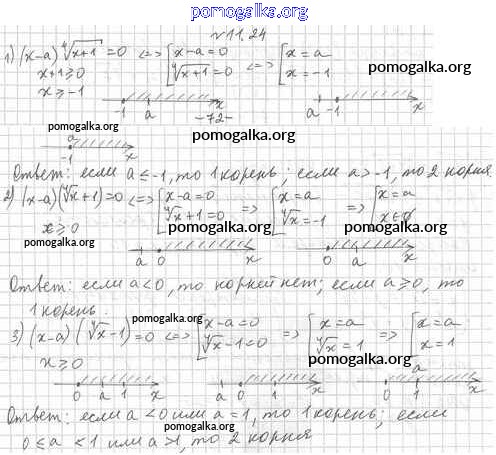 pomogalka.org
№11.24
1) (x-a)⁴√(x+1) = 0 <=> [x-a=0 <=> [x=a
x+1≥0 [⁴√(x+1)=0 [x=-1
x≥-1
pomogalka.org
-1 a x a -1 x
-72-
pomogalka.org pomogalka.org
a
-1 x
Ответ: если a≤-1, то 1 корень; если a>-1, то 2 корня
2) (x-a)(⁴√x+1)=0 <=> [x-a=0 => [x=a => [x=a
x≥0 [⁴√x+1=0 [⁴√x=-1 [x∈∅
pomogalka.org pomogalka.org pomogalka.org
a 0 x 0 a x
Ответ: если a<0, то корней нет; если a≥0, то
1 корень.
pomogalka.org
3) (x-a)(⁴√x-1)=0 <=> [x-a=0 => [x=a => [x=a
x≥0 [⁴√x-1=0 [⁴√x=1 [x=1
pomogalka.org
a
0 a 1 x a 0 1 x 0 1 x
Ответ: если a<0 или a=1, то 1 корень; если
pomogalka.org
0≤a<1 или a>1, то 2 корня